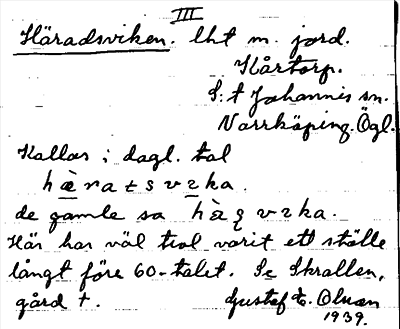 III
Häradsviken. lht m. jord.
Kårtorp.
S:t Johannis sn.
Norrköping. Ögl.
Kallas i dagl. tal
hæ̀ratsvɩka.
de gamle sa hàʀvɩka.
Här har väl tiol varit ett ställe
långt före 60-talet. Se Skrallen,
gård †.
Gustaf E. Olsson
1939.